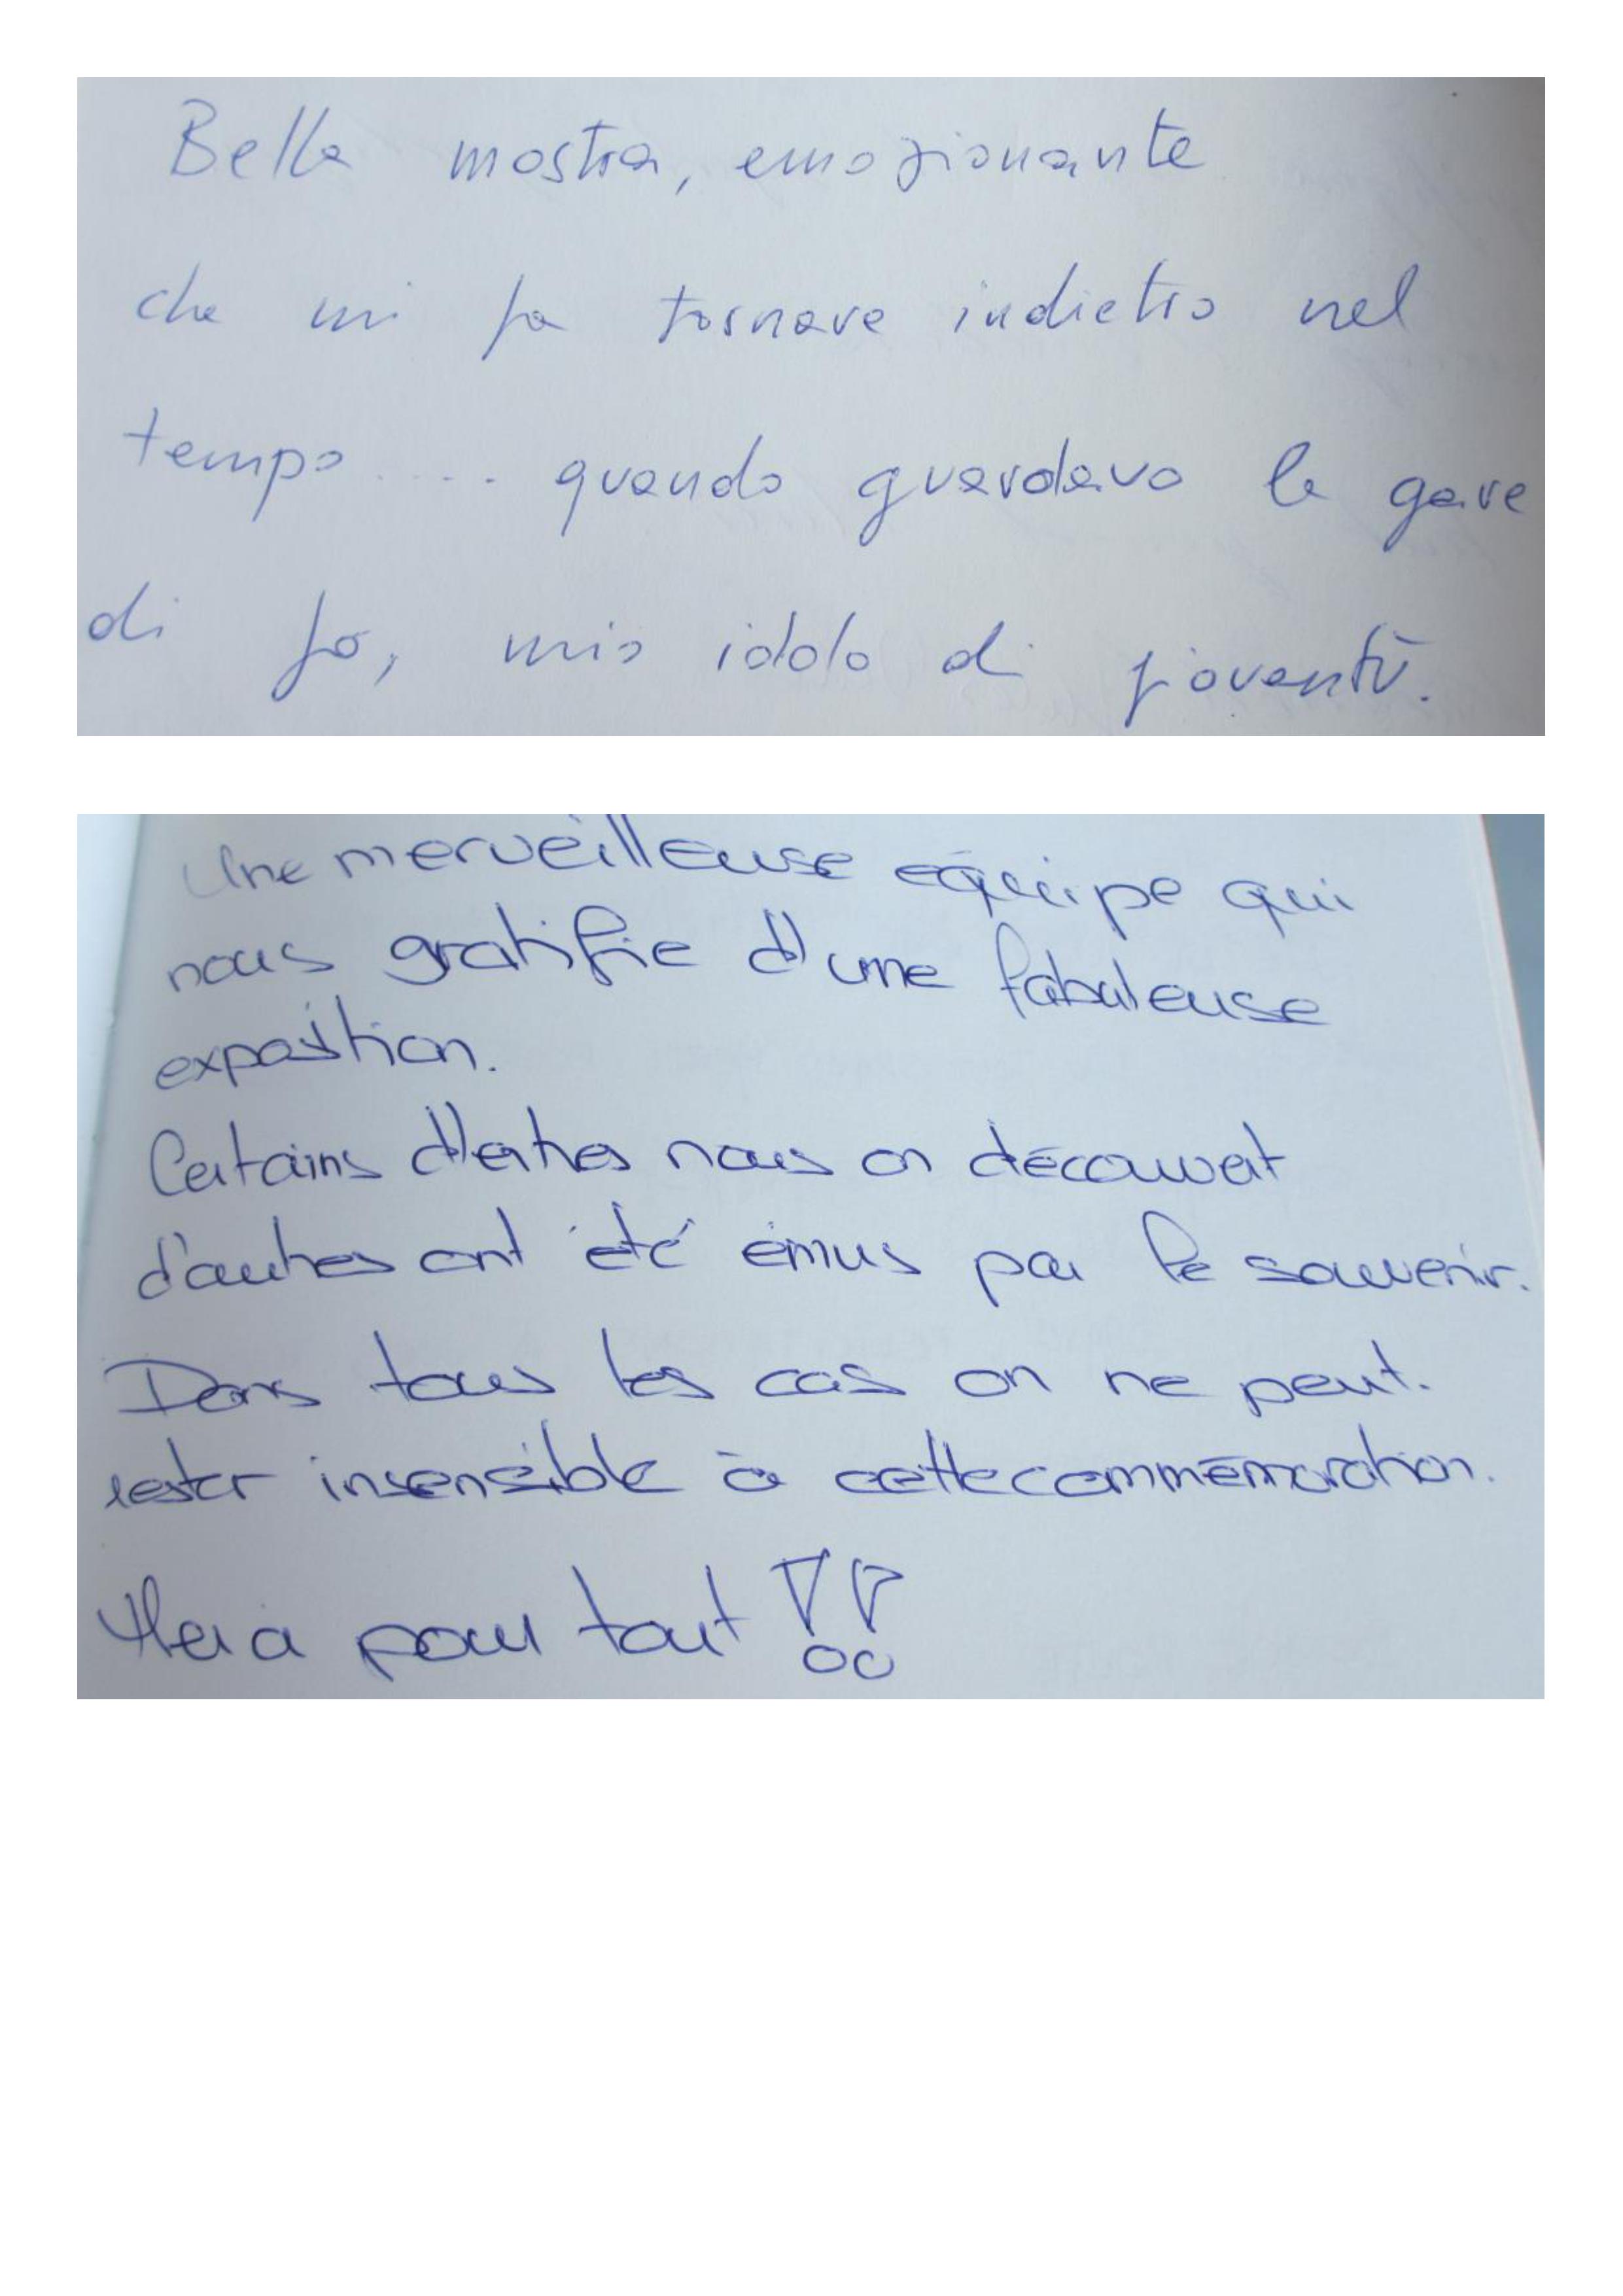 Bella mostra, emozionante
che mi fa tornare indietro nel
tempo .... quando guardavo le gare
di Jo, mio idolo di gioventù.
Une merveilleuse équipe qui
nous gratifie d'une fabuleuse
exposition.
Certains d'entres nous on découvert
d'autres ont été émus par le souvenir.
Dans tous les cas on ne peut.
rester insensible à cette commémoration.
Merci pour tout !!